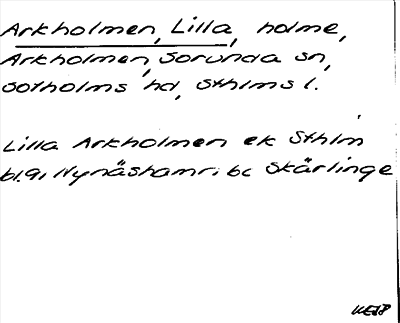 Arkholmen, Lilla, holme,
Arkholmen, Sorunda sn,
Sotholms hd, Sthlms l.
Lilla Arkholmen ek Sthlm
bl.91 Nynäshamn; bc Skärlinge